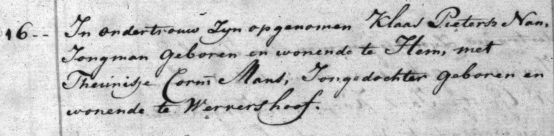 16-- In ondertrouw Zyn opgenomen Klaas Pietersz Nan,
Jongman geboren en wonende te Hem, met
Theunisje Corn: Mans, Jongedochter geboren en
wonende te Wervershoof.